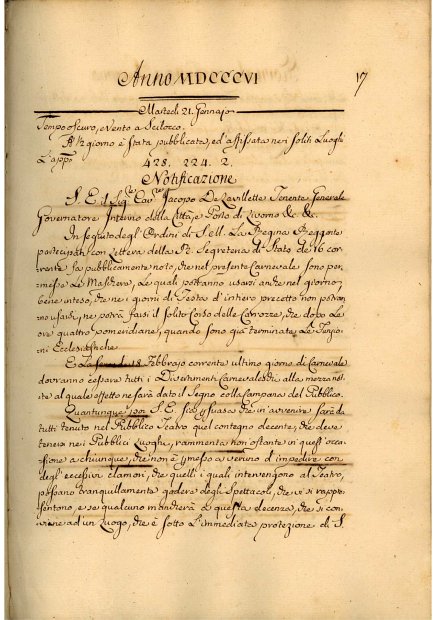 Anno MDCCCVI
17
Martedì 21. Gennajo
Tempo oscuro, e Vento a Scilocco.
A ½ giorno è stata pubblicata, ed affissata nei soliti Luoghi
L'appo
428. 224. 2.
Notificazione
S. E. il Sigre Cavre Jacopo De Lavillette Tenente Generale
Governatore Interno della Città, e Porto di Livorno &c. &c.
In seguito degl'Ordini di S. M. La Regina Reggente
partecipati con Lettera della R. Segreteria di Stato de' 16 cor-
rente, fa pubblicamente noto, che nel presente Carnevale sono per-
messe le Maschere, Le quali potranno usarsi anche nel giorno,
bene inteso, che nei giorni di Festa d'intero precetto non potran-
no usarsi, ne potrà farsi il solito Corso delle Carrozze, che dopo Le
ore quattro pomeridiane, quando sono già terminate Le Funzio-
ni Ecclesiastiche.
E La sera de' 18. Febbrajo corrente ultimo giorno di Carnevale
dovranno cessare tutti i Divertimenti Carnevaleschi alla mezza not-
te al quale effetto ne sarà dato il segno colla Campana del Pubblico.
Quantunque poi S. E. sia persuasa che in avvenire sarà da
tutti tenuto nel Pubblico Teatro quel contegno decente, che deve
tenersi nei Pubblici Luoghi, rammenta non ostante in quest'occa-
sione a chiunque, che non è permesso a veruno d'impedire con
degl'eccessivi clamori, che quelli i quali intervengono al Teatro,
possano tranquillamente godere degli Spettacoli, che vi si rappre-
sentono, e se qualcuno mancherà a questa decenza, che si con-
viene ad un Luogo, che è sotto L'immediata protezione di S.